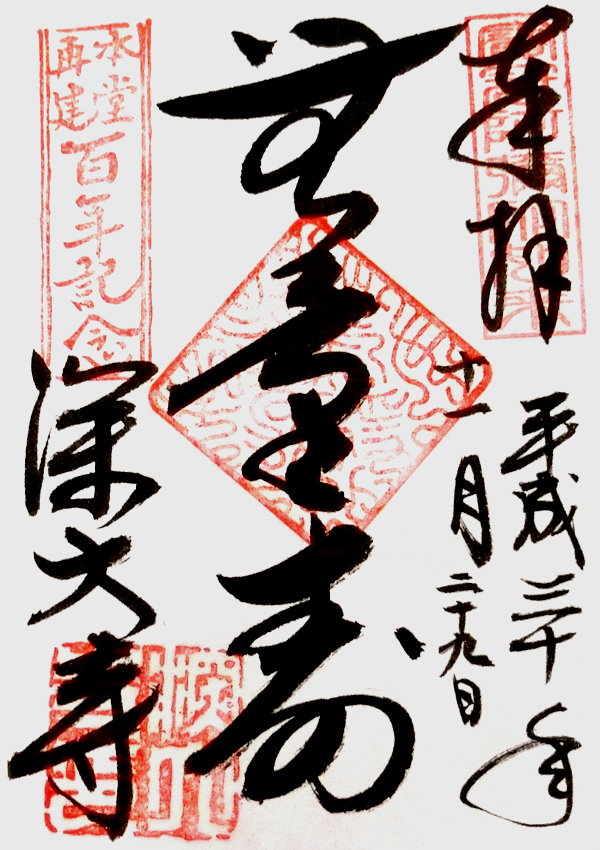 奉拝
平成三十年
十一月二十九日
無量壽
本堂再建百年記念
深大寺